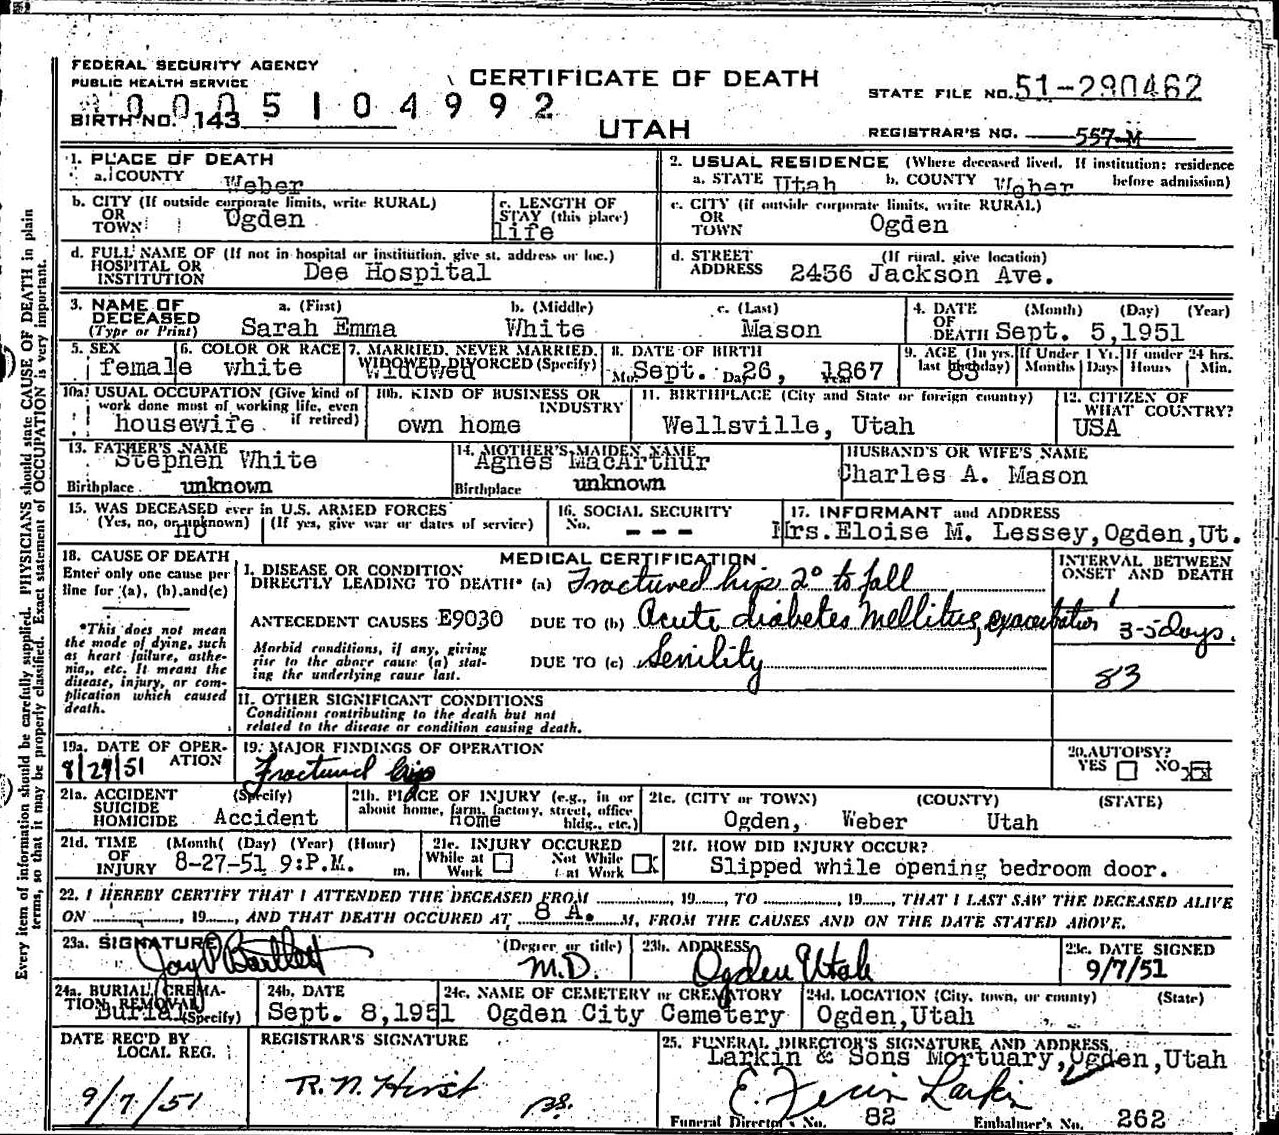 FEDERAL SECURITY AGENCY
PUBLIC HEALTH SERVICE
CERTIFICATE OF DEATH
STATE FILE NO. 51-290462
0005104992
BIRTH NO. 143
UTAH
REGISTRAR'S NO. 557-M
1. PLACE OF DEATH
a. COUNTY Weber
2. USUAL RESIDENCE (Where deceased lived. If institution: residence before admission)
a. STATE Utah b. COUNTY Weber
b. CITY (If outside corporate limits, write RURAL)
OR
TOWN Ogden
c. LENGTH OF
STAY (this place)
life
c. CITY (if outside corporate limits, write RURAL)
OR
TOWN Ogden
d. FULL NAME OF (If not in hospital or institution, give st. address or loc.)
HOSPITAL OR
INSTITUTION Dee Hospital
d. STREET (If rural, give location)
ADDRESS 2456 Jackson Ave.
3. NAME OF
DECEASED
(Type or Print)
a. (First) b. (Middle) c. (Last)
Sarah Emma White Mason
4. DATE (Month) (Day) (Year)
OF
DEATH Sept. 5,1951
5. SEX
female
6. COLOR OR RACE
white
7. MARRIED, NEVER MARRIED,
WIDOWED, DIVORCED (Specify)
Widowed
8. DATE OF BIRTH
Mo. Sept. Day 26, Year 1867
9. AGE (In yrs. last birthday)
83
If Under 1 Yr. If under 24 hrs.
Months Days Hours Min.
10a. USUAL OCCUPATION (Give kind of
work done most of working life, even
if retired)
housewife
10b. KIND OF BUSINESS OR
INDUSTRY
own home
11. BIRTHPLACE (City and State or foreign country)
Wellsville, Utah
12. CITIZEN OF
WHAT COUNTRY?
USA
13. FATHER'S NAME
Stephen White
Birthplace unknown
14. MOTHER'S MAIDEN NAME
Agnes MacArthur
Birthplace unknown
HUSBAND'S OR WIFE'S NAME
Charles A. Mason
15. WAS DECEASED ever in U.S. ARMED FORCES
(Yes, no, or unknown) (If yes, give war or dates of service)
no
16. SOCIAL SECURITY
No. - - -
17. INFORMANT and ADDRESS
Mrs.Eloise M. Lessey,Ogden,Ut.
18. CAUSE OF DEATH
Enter only one cause per
line for (a), (b), and (c)
*This does not mean
the mode of dying, such
as heart failure, asthe-
nia,, etc. It means the
disease, injury, or com-
plication which caused
death.
MEDICAL CERTIFICATION
I. DISEASE OR CONDITION
DIRECTLY LEADING TO DEATH* (a) Fractured hip 2° to fall
ANTECEDENT CAUSES E9030 DUE TO (b) Acute diabetes mellitus, exacerbation
Morbid conditions, if any, giving
rise to the above cause (a) stat-
ing the underlying cause last.
DUE TO (c) Senility
INTERVAL BETWEEN
ONSET AND DEATH
3-5 days.
83
II. OTHER SIGNIFICANT CONDITIONS
Conditions contributing to the death but not
related to the disease or condition causing death.
19a. DATE OF OPER-
ATION
8/29/51
19. MAJOR FINDINGS OF OPERATION
Fractured hip
20. AUTOPSY?
YES NO X
21a. ACCIDENT (Specify)
SUICIDE
HOMICIDE Accident
21b. PLACE OF INJURY (e.g., in or
about home, farm, factory, street, office
bldg., etc.)
Home
21c. (CITY or TOWN) (COUNTY) (STATE)
Ogden, Weber Utah
21d. TIME (Month) (Day) (Year) (Hour)
OF
INJURY 8-27-51 9:P.M. m.
21e. INJURY OCCURED
While at Work Not While at Work X
21f. HOW DID INJURY OCCUR?
Slipped while opening bedroom door.
22. I HEREBY CERTIFY THAT I ATTENDED THE DECEASED FROM ............, 19....., TO ............, 19....., THAT I LAST SAW THE DECEASED ALIVE
ON ............, 19....., AND THAT DEATH OCCURED AT 8 A. M, FROM THE CAUSES AND ON THE DATE STATED ABOVE.
23a. SIGNATURE (Degree or title)
Jay P Bartlett M.D.
23b. ADDRESS
Ogden Utah
23c. DATE SIGNED
9/7/51
24a. BURIAL, CREMA-
TION, REMOVAL
(Specify)
Burial
24b. DATE
Sept. 8,1951
24c. NAME OF CEMETERY or CREMATORY
Ogden City Cemetery
24d. LOCATION (City, town, or county) (State)
Ogden,Utah
DATE REC'D BY
LOCAL REG.
9/7/51
REGISTRAR'S SIGNATURE
R. N. Hirst
25. FUNERAL DIRECTOR'S SIGNATURE AND ADDRESS
Larkin & Sons Mortuary,Ogden,Utah
Larkin
Funeral Director's No. 82 Embalmer's No. 262
Every item of information should be carefully supplied. PHYSICIANS should state CAUSE OF DEATH in plain
terms, so that it may be properly classified. Exact statement of OCCUPATION is very important.